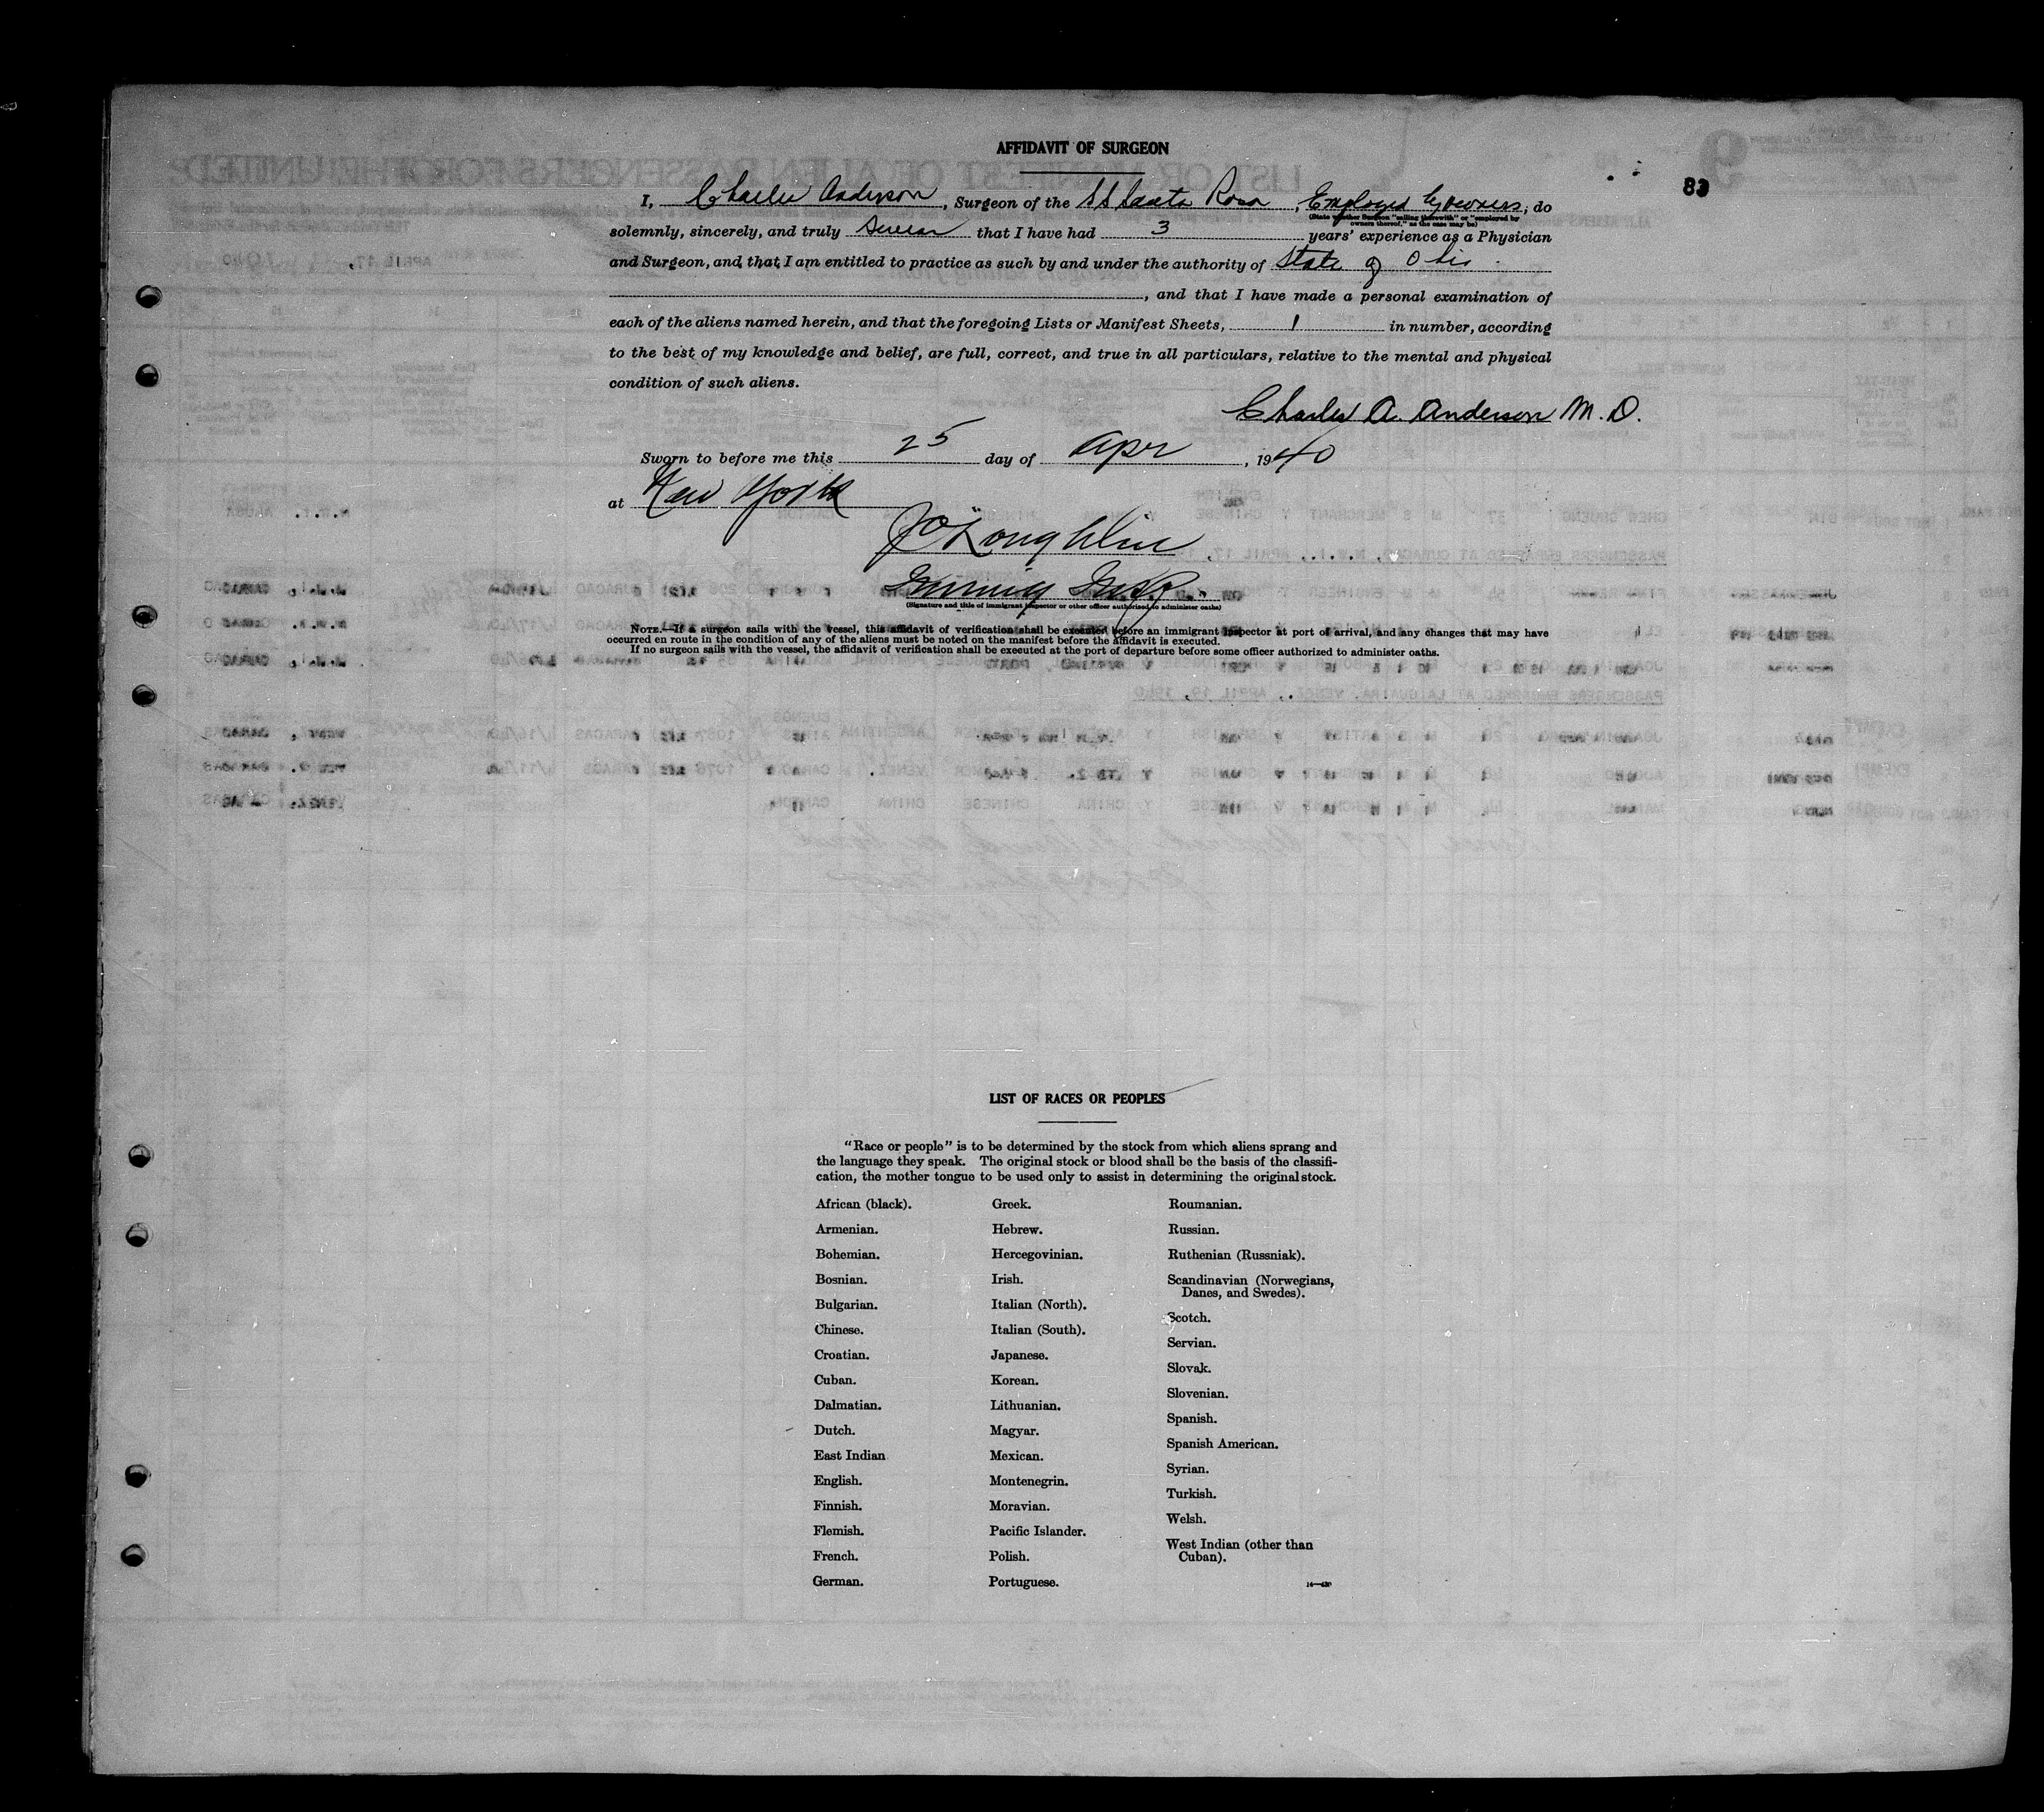 AFFIDAVIT OF SURGEON
83
I, Charles Anderson, Surgeon of the SS Santa Rosa, Employed by owners, do
(State whether Surgeon "sailing therewith" or "employed by owners thereof," as the case may be)
solemnly, sincerely, and truly swear that I have had 3 years' experience as a Physician
and Surgeon, and that I am entitled to practice as such by and under the authority of State of Ohio
, and that I have made a personal examination of
each of the aliens named herein, and that the foregoing Lists or Manifest Sheets, 1 in number, according
to the best of my knowledge and belief, are full, correct, and true in all particulars, relative to the mental and physical
condition of such aliens.
Charles A. Anderson M.D.
Sworn to before me this 25 day of Apr, 1940
at New York
J O'Loughlin
Immig Insp.
(Signature and title of immigrant inspector or other officer authorized to administer oaths)
NOTE.—If a surgeon sails with the vessel, this affidavit of verification shall be executed before an immigrant inspector at port of arrival, and any changes that may have
occurred en route in the condition of any of the aliens must be noted on the manifest before the affidavit is executed.
If no surgeon sails with the vessel, the affidavit of verification shall be executed at the port of departure before some officer authorized to administer oaths.
LIST OF RACES OR PEOPLES
"Race or people" is to be determined by the stock from which aliens sprang and
the language they speak. The original stock or blood shall be the basis of the classifi-
cation, the mother tongue to be used only to assist in determining the original stock.
African (black).
Armenian.
Bohemian.
Bosnian.
Bulgarian.
Chinese.
Croatian.
Cuban.
Dalmatian.
Dutch.
East Indian
English.
Finnish.
Flemish.
French.
German.
Greek.
Hebrew.
Hercegovinian.
Irish.
Italian (North).
Italian (South).
Japanese.
Korean.
Lithuanian.
Magyar.
Mexican.
Montenegrin.
Moravian.
Pacific Islander.
Polish.
Portuguese.
Roumanian.
Russian.
Ruthenian (Russniak).
Scandinavian (Norwegians,
Danes, and Swedes).
Scotch.
Servian.
Slovak.
Slovenian.
Spanish.
Spanish American.
Syrian.
Turkish.
Welsh.
West Indian (other than
Cuban).